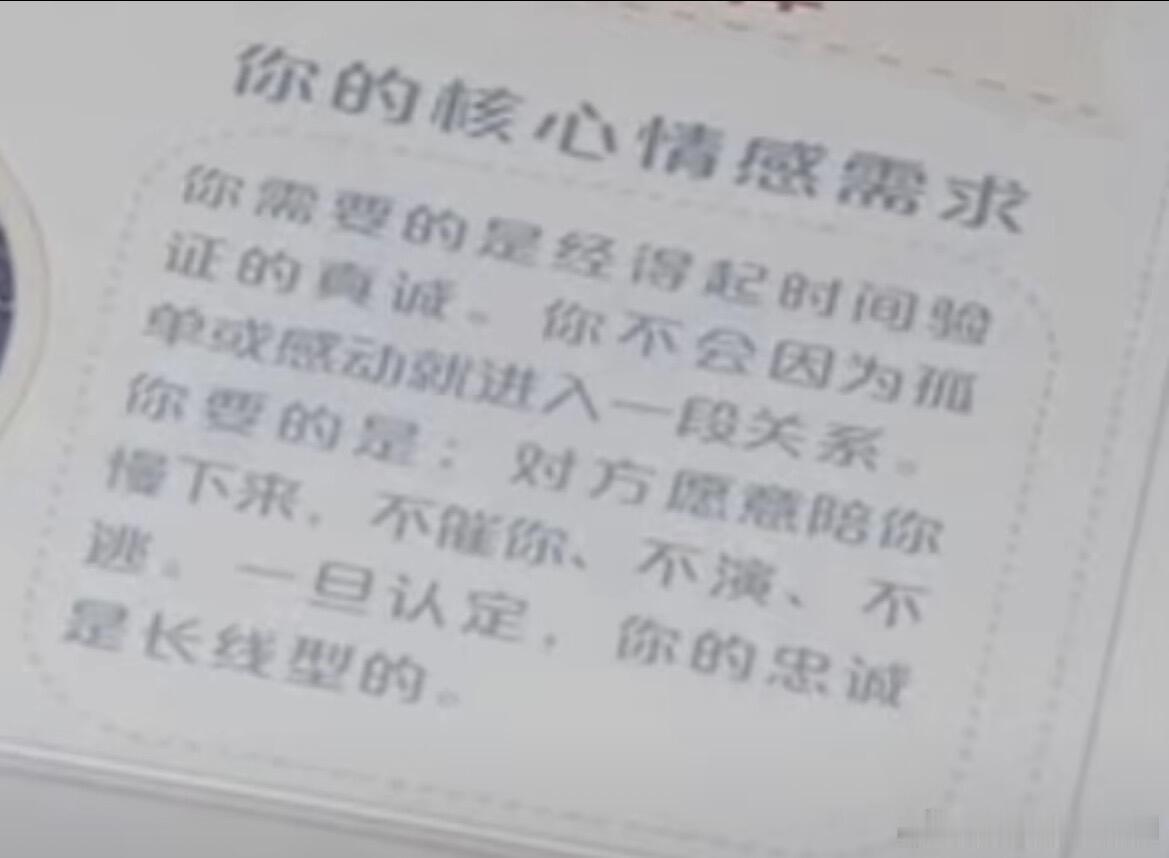 你的核心情感需求
你需要的是经得起时间验
证的真诚。你不会因为孤
单或感动就进入一段关系。
你要的是：对方愿意陪你
慢下来，不催你、不演、不
逃。一旦认定，你的忠诚
是长线型的。